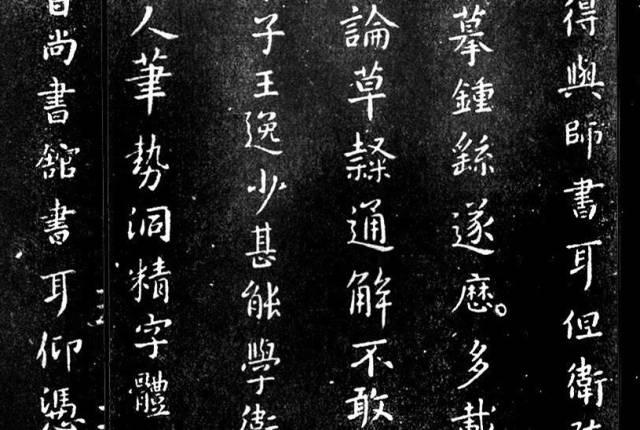 得與師書耳但衛
摹鍾繇遂歷多載
論草隸通解不敢
子王逸少甚能學衛
人筆勢洞精字體
尚書舘書耳仰憑